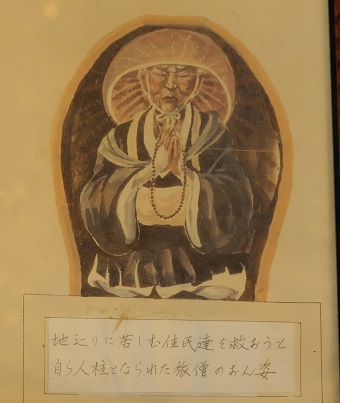 地辷りに苦しむ住民達を救おうと
自ら人柱となられた旅僧のおん姿